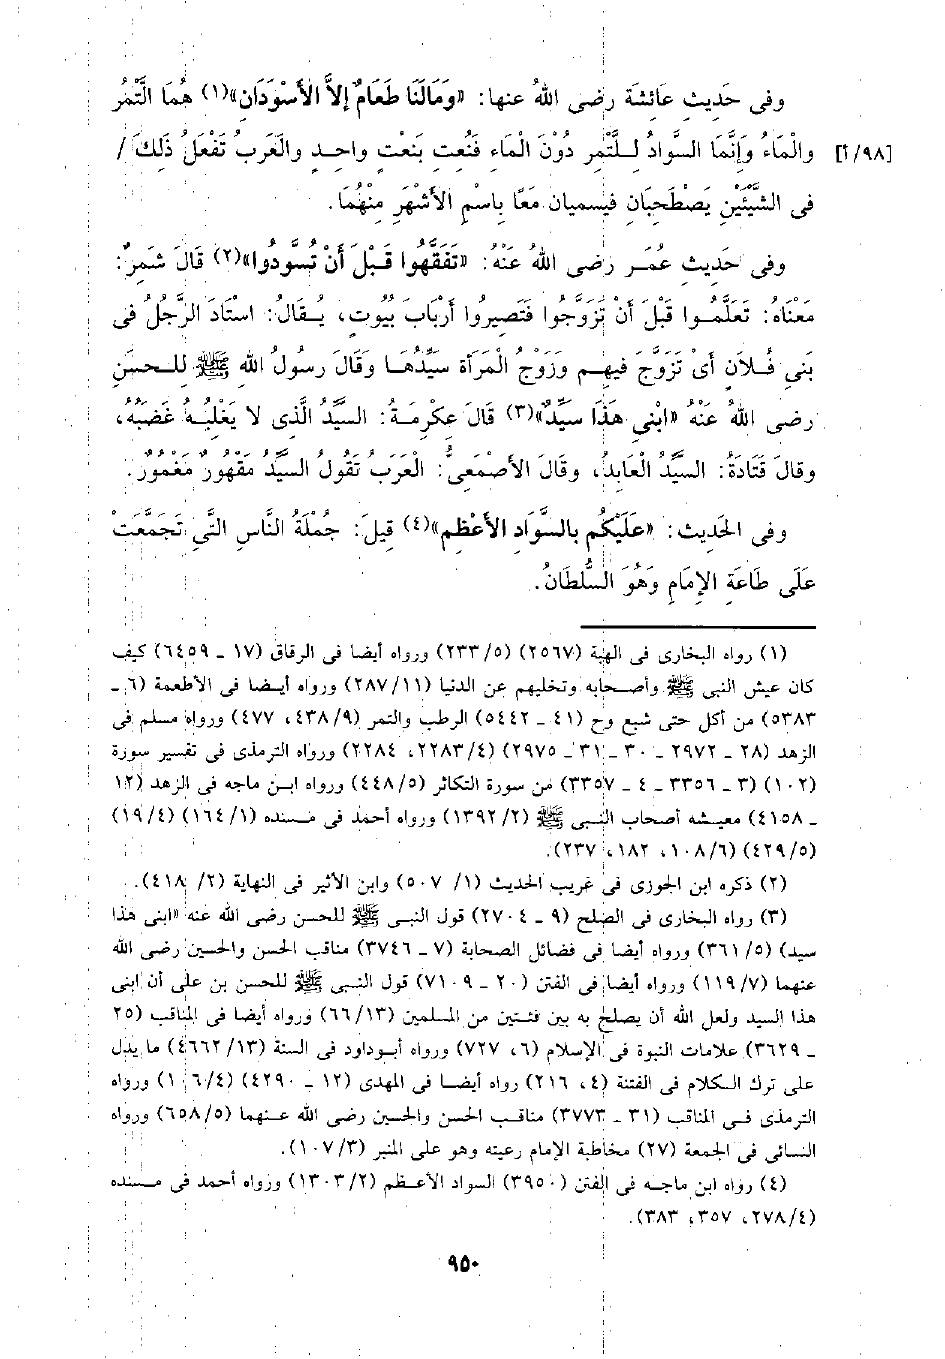 وفى حَدِيثِ عَائِشَة رضى اللهُ عنها: «وَمَالَنَا طَعَامٌ إلاَّ الأَسْوَدَان»(١) هُمَا التَّمْرُ
[٩٨/أ] والْماَءُ وَإِنَّمَا السَّوادُ لِلتَّمْرِ دُوْنَ الْمَاءِ فَنُعِت بِنَعْتٍ واحِدٍ والْعَرَبُ تَفْعَلُ ذَلِكَ /
فى الشَّيْئَيْنِ يَصْطَحِبَانِ فيسميان مَعًا بِاسْمِ الأَشْهَرِ مِنْهُمَا.
وفى حَدِيثِ عُمَر رضى اللهُ عَنْهُ: «تَفَقَّهُوا قَبْلَ أَنْ تُسَّودُوا»(٢) قَالَ شَمِرٌ:
مَعْنَاهُ: تَعَلَّمُوا قَبْلَ أَنْ تَزَوَّجُوا فَتَصِيرُوا أَرْبَابَ بُيُوت، يُقَالُ: اسْتَادَ الرَّجُلُ فى
بَنِى فُلاَنٍ أَىْ تَزَوَّجَ فِيهِم وَزَوْجُ الْمَرَأة سَيِّدُهَا وَقَالَ رَسُولُ اللهِ ﷺ لِلحسَنِ
رضى اللهُ عَنْهُ «ابْنِى هَذَا سَيِّدٌ»(٣) قَالَ عِكْرِمَةُ: السَيِّدُ الَّذِى لا يَغْلِبُهُ غَضَبُهُ،
وقالَ قَتَادَةُ: السَيِّدُ الْعَابِدُ، وقَالَ الأَصْمَعِىُّ: الْعَرَبُ تَقُولُ السَيِّدُ مَقْهُورٌ مَغْمُورٌ.
وفى الحَدِيث: «عَلَيْكُم بالسَّوادِ الأَعْظَمِ»(٤) قِيلَ: جُمْلَةُ النَّاسِ التَّىِ تَجَمَّعَتْ
عَلَى طَاعَةِ الإِمَامِ وَهُوَ السُّلْطَانُ.
(١) رواه البخارى فى الهبة (٢٥٦٧) (٢٣٣/٥) ورواه أيضا فى الرقاق (١٧ ـ ٦٤٥٩) كيف
كان عيش النبى ﷺ وأصحابه وتخليهم عن الدنيا (٢٨٧/١١) ورواه أيضا فى الأطعمة (٦ ـ
٥٣٨٣) من أكل حتى شبع وح (٤١ ـ ٥٤٤٢) الرطب والتمر (٤٣٨/٩، ٤٧٧) ورواه مسلم فى
الزهد (٢٨ ـ ٢٩٧٢ ـ ٣٠ ـ ٣١ ـ ٢٩٧٥) (٢٢٨٣/٤، ٢٢٨٤) ورواه الترمذى فى تفسير سورة
(١٠٢) (٣ ـ ٣٣٥٦ ـ ٤ ـ ٣٣٥٧) من سورة التكاثر (٤٤٨/٥) ورواه ابن ماجه فى الزهد (١٢
ـ ٤١٥٨) معيشه أصحاب النبى ﷺ (١٣٩٢/٢) ورواه أحمد فى مسنده (١٦٤/١) (١٩/٤)
(٤٢٩/٥) (١٠٨/٦، ١٨٢، ٢٣٧).
(٢) ذكره ابن الجوزى فى غريب الحديث (١/ ٥٠٧) وابن الأثير فى النهاية (٢/ ٤١٨).
(٣) رواه البخارى فى الصلح (٩ ـ ٢٧٠٤) قول النبى ﷺ للحسن رضى الله عنه «ابنى هذا
سيد) (٣٦١/٥) ورواه أيضا فى فضائل الصحابة (٧ ـ ٣٧٤٦) مناقب الحسن والحسين رضى الله
عنهما (١١٩/٧) ورواه أيضا فى الفتن (٢٠ ـ ٧١٠٩) قول النبى ﷺ للحسن بن على أن ابنى
هذا السيد ولعل الله أن يصلح به بين فئتين من المسلمين (٦٦/١٣) ورواه أيضا فى المناقب (٢٥
ـ ٣٦٢٩) علامات النبوة فى الإسلام (٦، ٧٢٧) ورواه أبوداود فى السنة (٤٦٦٢/١٣) ما يدل
على ترك الكلام فى الفتنة (٤، ٢١٦) رواه أيضا فى المهدى (١٢ ـ ٤٢٩٠) (١٠٦/٤) ورواه
الترمذى فى المناقب (٣١ ـ ٣٧٧٣) مناقب الحسن والحسين رضى الله عنهما (٦٥٨/٥) ورواه
النسائى فى الجمعة (٢٧) مخاطبة الإمام رعيته وهو على المنبر (١٠٧/٣).
(٤) رواه ابن ماجه فى الفتن (٣٩٥٠) السواد الأعظم (١٣٠٣/٢) ورواه أحمد فى مسنده
(٢٧٨/٤، ٣٥٧، ٣٨٣).
٩٥٠